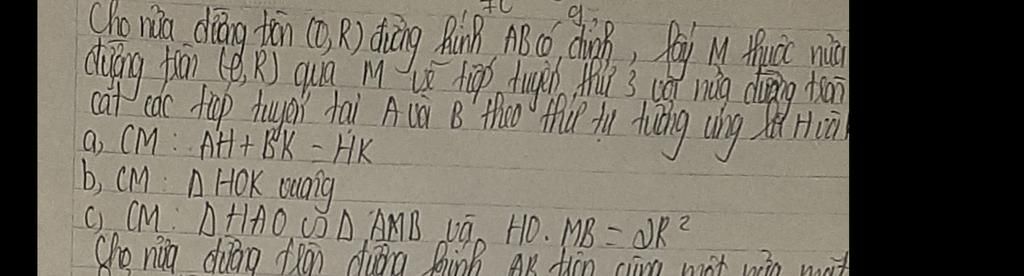 Cho nửa đường tròn (O, R) đường kính AB cố định, lấy M thuộc nửa
đường tròn (O, R) qua M vẽ tiếp tuyến thứ 3 với nửa đường tròn
cắt các tiếp tuyến tại A và B theo thứ tự tương ứng H và
a, CM: AH + BK = HK
b, CM: Δ HOK vuông
c, CM: Δ HAO ∽ Δ AMB và HO. MB = 2R²
Cho nửa đường tròn đường kính AB trên cùng một nửa mặt